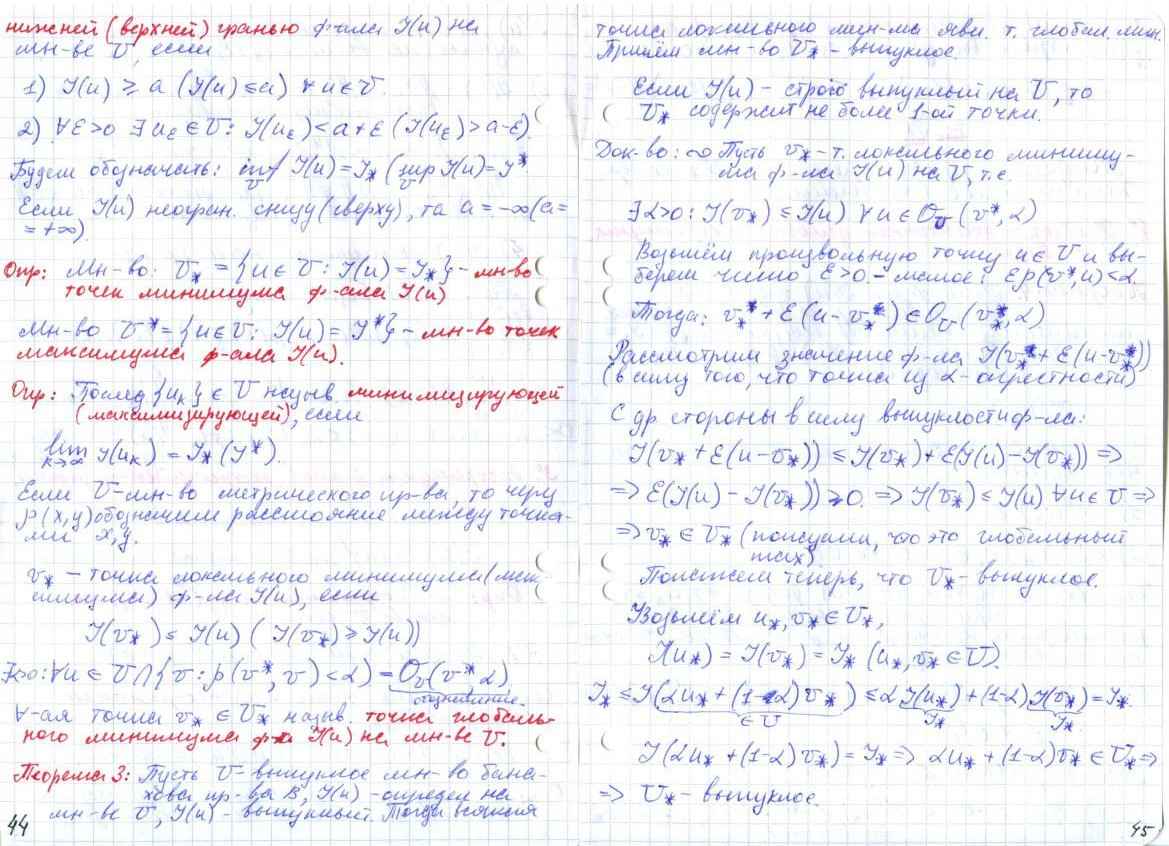 нижней (верхней) гранью ф-ала J(u) на
мн-ве U, если
1) J(u) ≥ a (J(u) ≤ a) ∀ u ∈ U
2) ∀ε>0 ∃ u_ε ∈ U: J(u_ε) < a+ε (J(u_ε) > a-ε)
Будем обозначать: inf_U J(u) = J_* (sup_U J(u) = J^*
Если J(u) неогран. снизу (сверху), то a = -∞ (a =
= +∞)
Опр: Мн-во: U_* = {u ∈ U: J(u) = J_*} - мн-во
точек минимума ф-ала J(u)
Мн-во U^* = {u ∈ U: J(u) = J^*} - мн-во точек
максимума ф-ала J(u).
Опр: Послед {u_k} ∈ U назыв. минимизирующей
(максимизирующей), если
lim_{k→∞} J(u_k) = J_* (J^*).
Если U - мн-во метрического пр-ва, то через
ρ(x,y) обозначим расстояние между точка-
ми x,y.
v_* - точка локального минимума (мак-
симума) ф-ла J(u), если
J(v_*) ≤ J(u) (J(v_*) ≥ J(u))
∃α>0: ∀u ∈ U ∩ {v: ρ(v^*, v) < α) = O_U(v^* α)
обозначение
∀-ая точка v_* ∈ U_* назыв. точка глобаль-
ного минимума ф-ла J(u) на мн-ве U.
Теорема 3: Пусть U - выпуклое мн-во бана-
хова пр-ва B, J(u) - определ на
мн-ве U, J(u) - выпуклый. Тогда всякая
44
точка локального мин-ма явл. т. глобал. мин.
Причём мн-во U_* - выпуклое.
Если J(u) - строго выпуклый на U, то
U_* содержит не более 1-ой точки.
Док-во: Пусть v_* - т. локального миниму-
ма ф-ла J(u) на U, т.е.
∃α>0: J(v_*) ≤ J(u) ∀u ∈ O_U(v^*, α)
Возьмём произвольную точку u ∈ U и вы-
берем число ε>0 - малое: ερ(v^*, u) < α.
Тогда: v_* + ε(u - v_*) ∈ O_U(v_*, α)
Рассмотрим значение ф-ла J(v_* + ε(u - v_*))
(в силу того, что точка из α-окрестности)
С др стороны в силу выпуклости ф-ла:
J(v_* + ε(u - v_*)) ≤ J(v_*) + ε(J(u) - J(v_*)) ⇒
⇒ ε(J(u) - J(v_*)) ≥ 0. ⇒ J(v_*) ≤ J(u) ∀u ∈ U ⇒
⇒ v_* ∈ U_* (показали, что это глобальный
max).
Покажем теперь, что U_* - выпуклое.
Возьмём u_*, v_* ∈ U_*,
J(u_*) = J(v_*) = J_* (u_*, v_* ∈ U).
J_* ≤ J(αu_* + (1-α)v_*) ≤ αJ(u_*) + (1-α)J(v_*) = J_*.
∈ U J_* J_*
J(αu_* + (1-α)v_*) = J_* ⇒ αu_* + (1-α)v_* ∈ U_* ⇒
⇒ U_* - выпуклое.
45